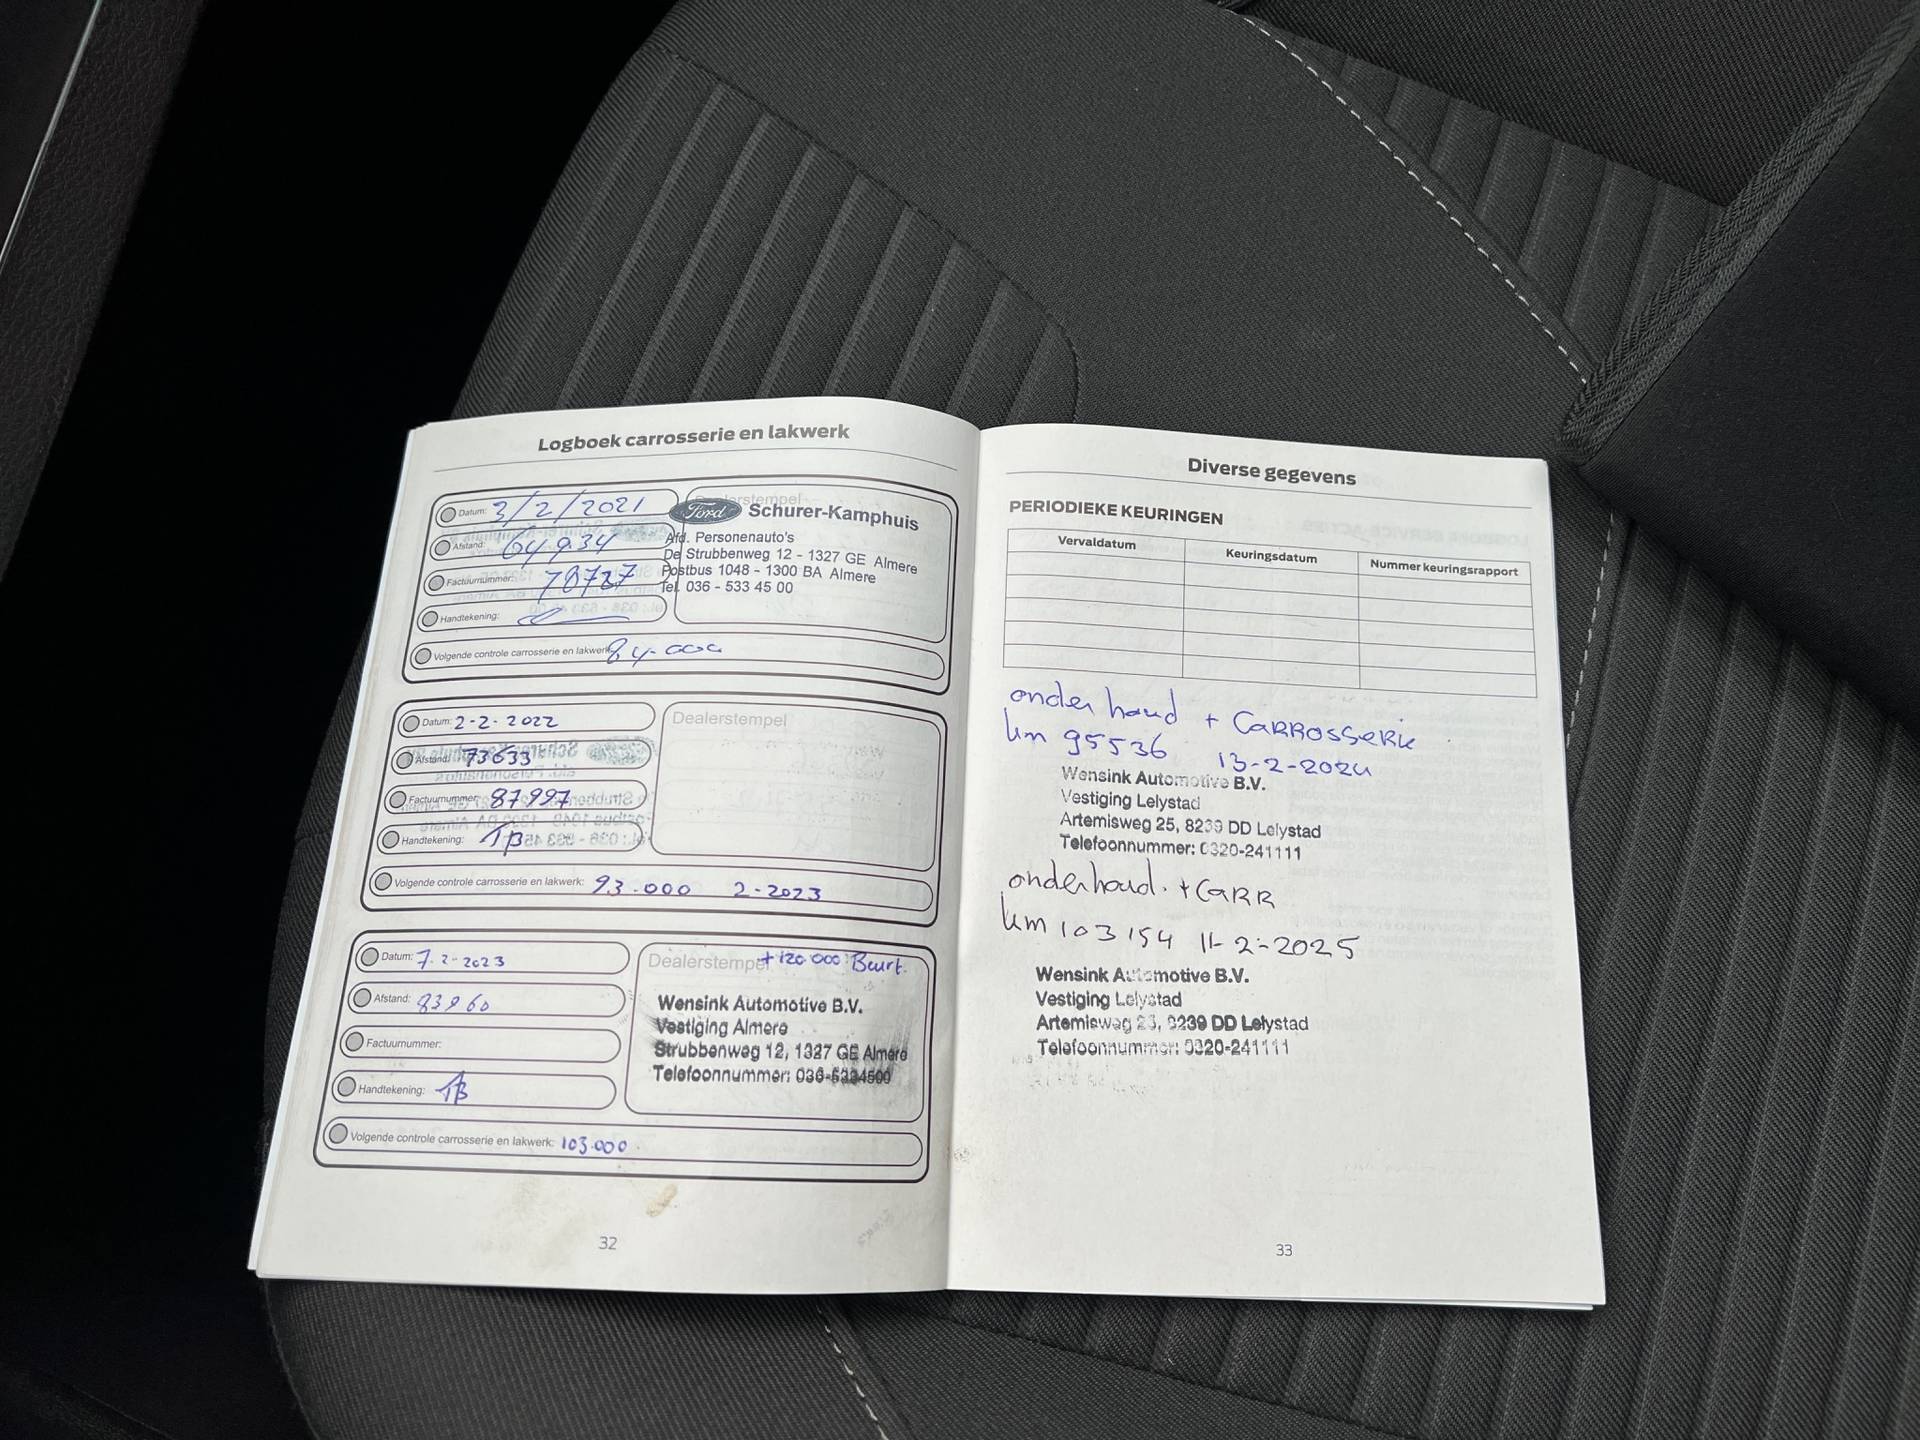 Logboek carrosserie en lakwerk
Datum: 3/2/2021
Afstand: 64934
Factuurnummer: 78727
Handtekening:
Volgende controle carrosserie en lakwerk: 84.000
Dealerstempel
Ford Schurer-Kamphuis
Afd. Personenauto's
De Strubbenweg 12 - 1327 GE Almere
Postbus 1048 - 1300 BA Almere
Tel. 036 - 533 45 00
Datum: 2-2-2022
Afstand: 73633
Factuurnummer: 87997
Handtekening: TB
Volgende controle carrosserie en lakwerk: 93.000 2-2023
Dealerstempel
Datum: 7-2-2023
Afstand: 83960
Factuurnummer:
Handtekening: TB
Volgende controle carrosserie en lakwerk: 103.000
Dealerstempel + 120.000 Beurt.
Wensink Automotive B.V.
Vestiging Almere
Strubbenweg 12, 1327 GE Almere
Telefoonnummer: 036-5334500
32
Diverse gegevens
PERIODIEKE KEURINGEN
Vervaldatum Keuringsdatum Nummer keuringsrapport
onderhoud + CARROSSERIE
km 95536 13-2-2024
Wensink Automotive B.V.
Vestiging Lelystad
Artemisweg 25, 8239 DD Lelystad
Telefoonnummer: 0320-241111
onderhoud. + CARR
km 103154 11-2-2025
Wensink Automotive B.V.
Vestiging Lelystad
Artemisweg 25, 8239 DD Lelystad
Telefoonnummer: 0320-241111
33